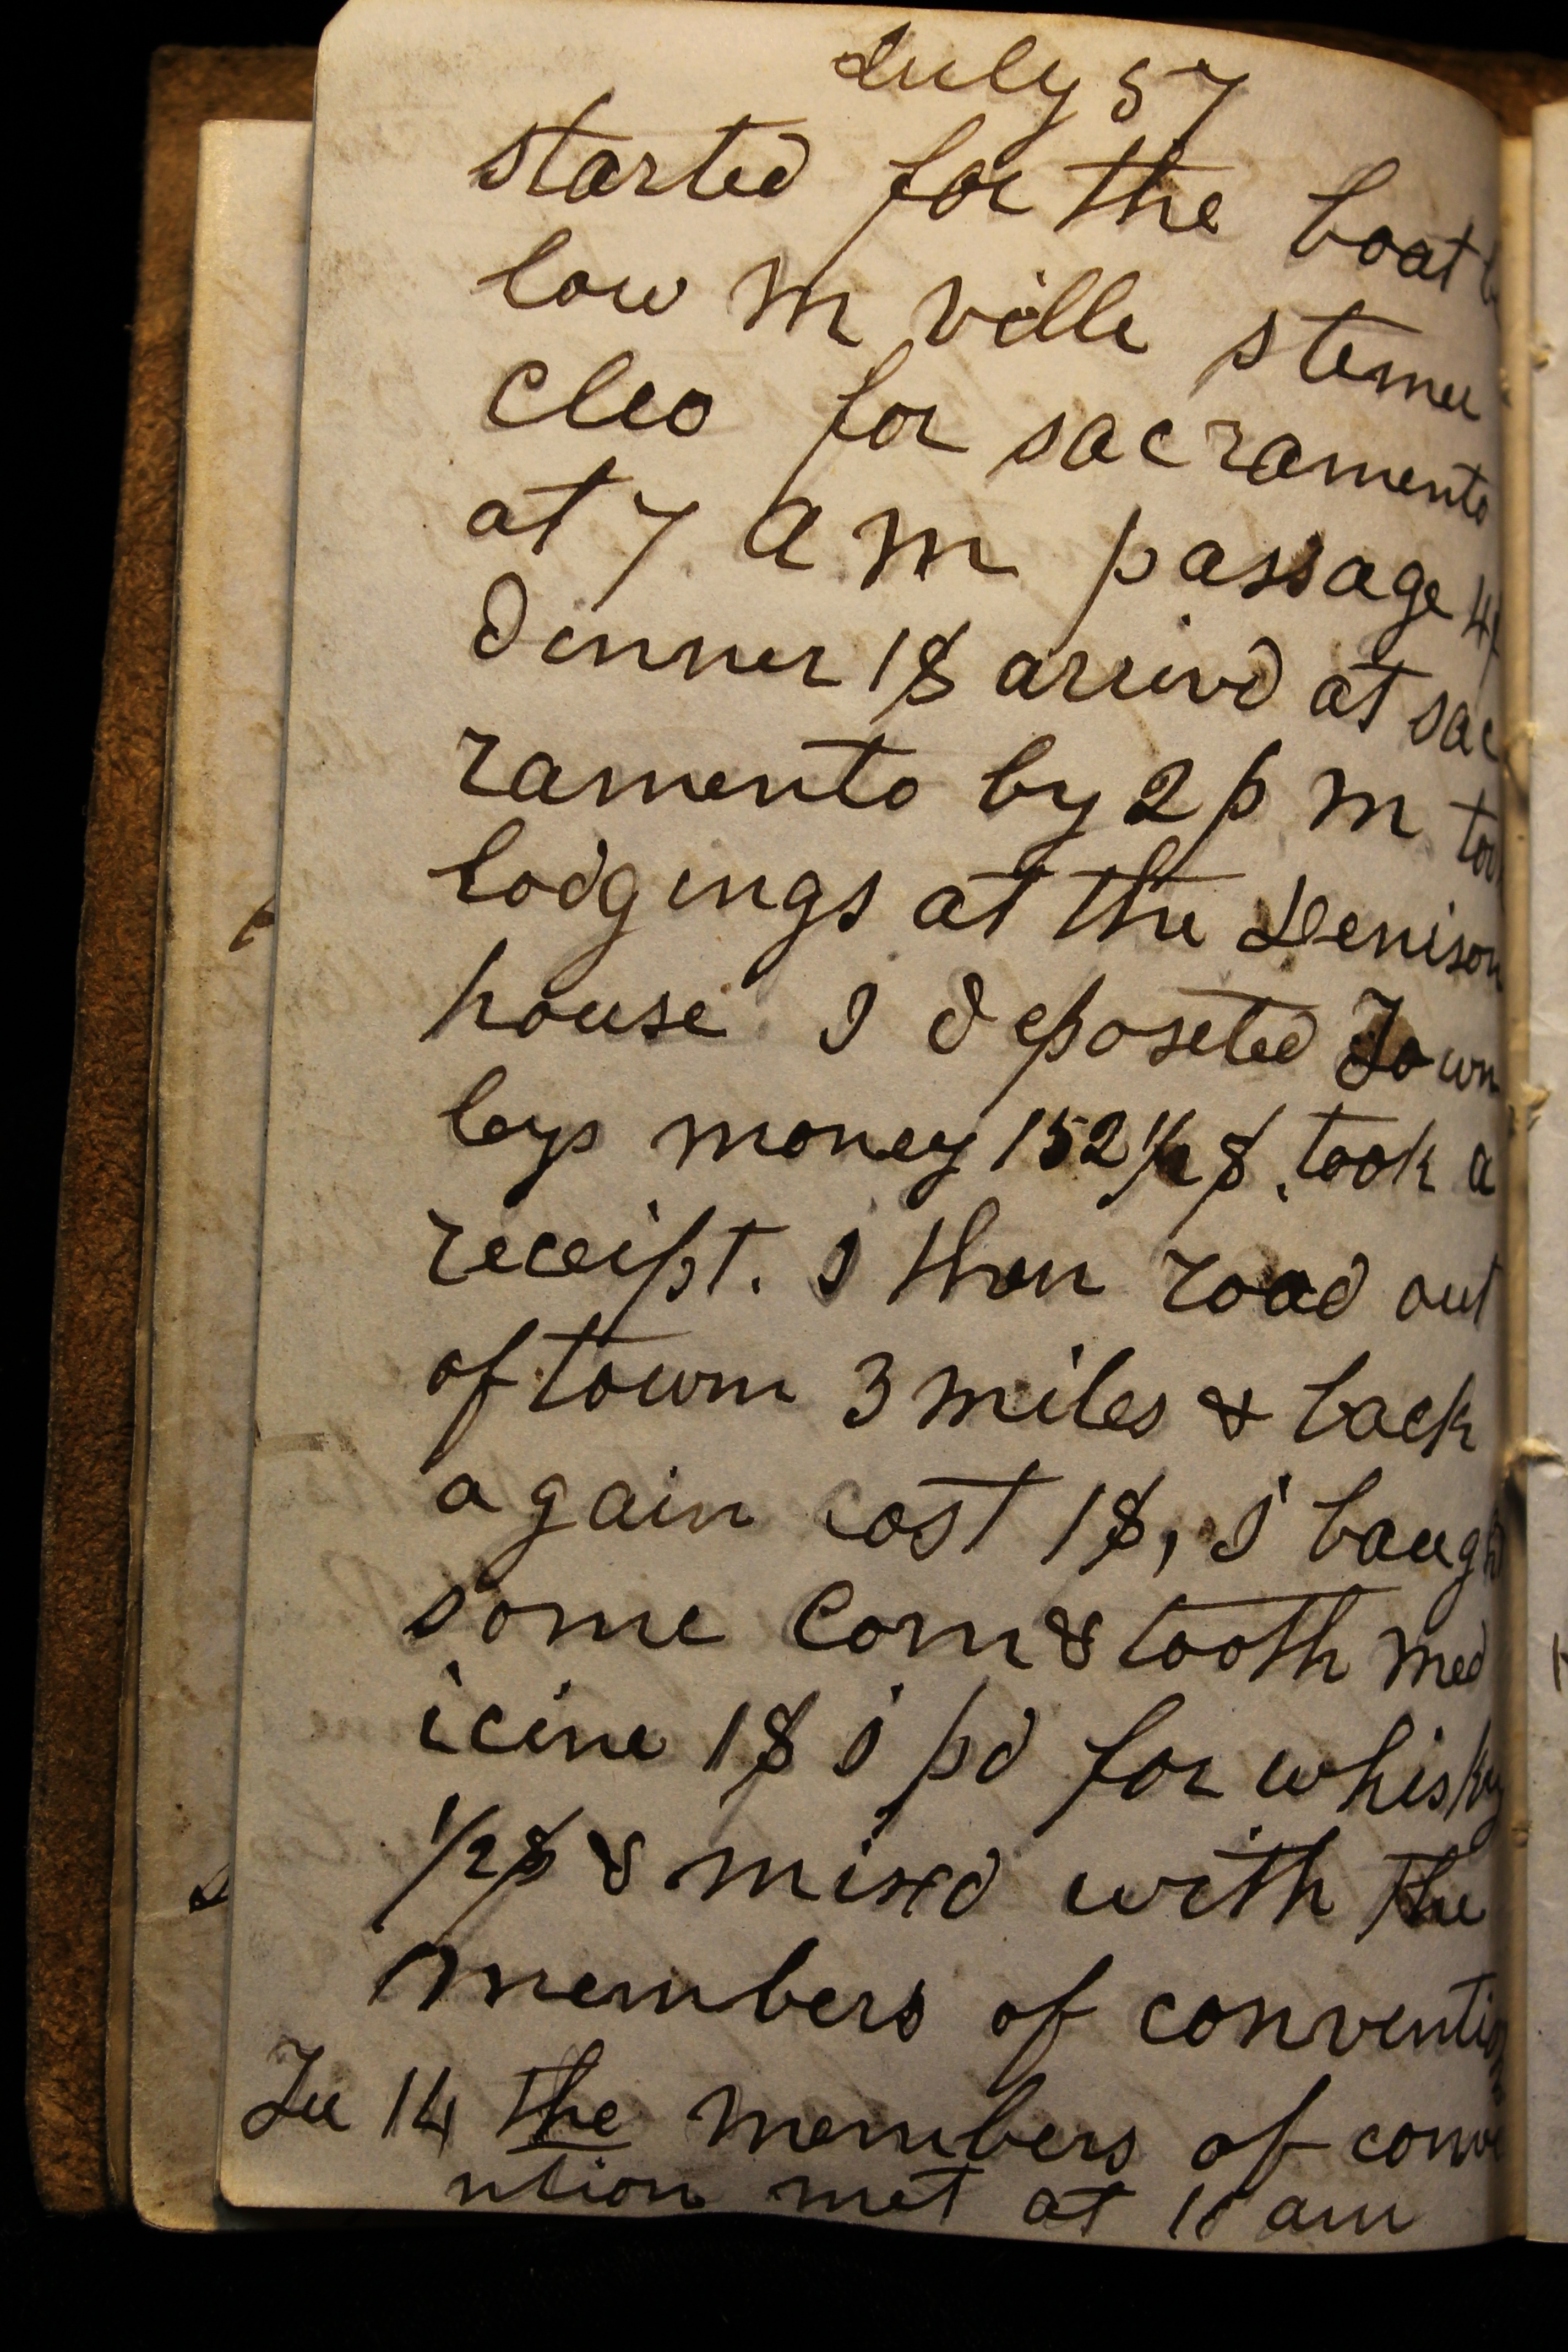 July 57
started for the boat
low m ville stemer
Cleo for sacramento
at 7 a m passage 4
dinner 1$ arrivd at sac
ramento by 2 p m took
lodgings at the Denison
house I deposeted Town
leys money 152 1/2 $. took a
receipt. I then road out
of town 3 miles & back
again cost 1$, I baught
some corn & tooth med
icine 1$ I pd for whisky
1/2$ & mixd with the
members of convention
Tu 14 the members of conve
ntion met at 10 am